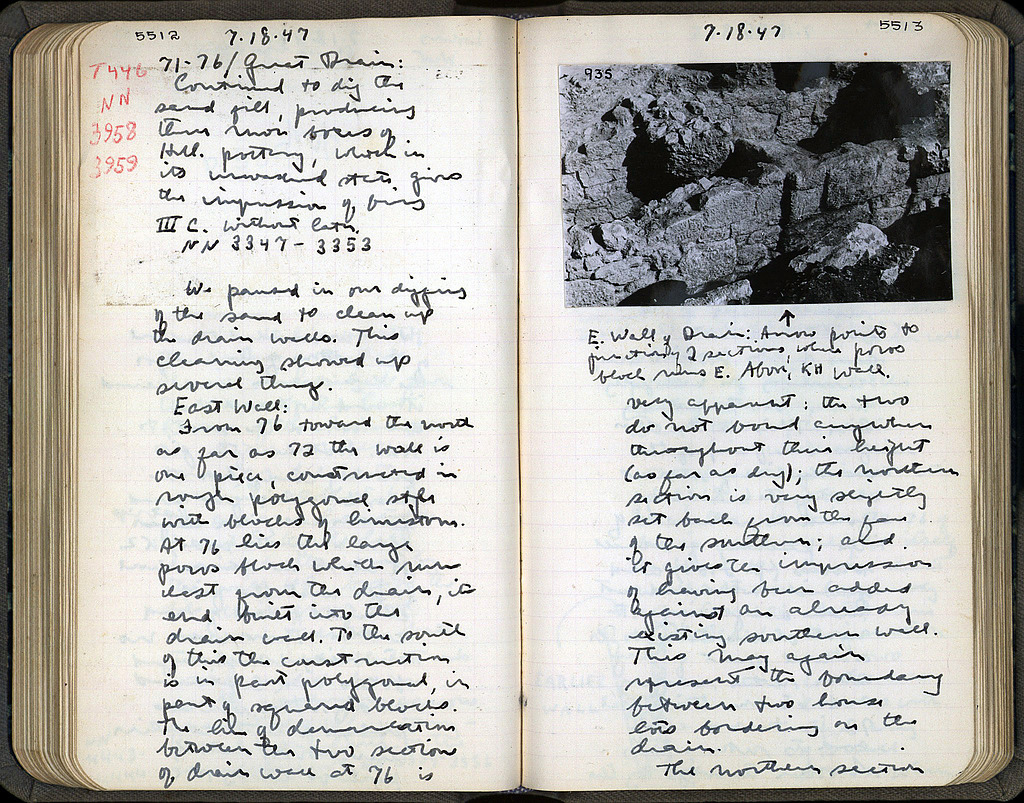 5512
7.18.47
T 446
NN
3958
3959
71-76/Great Drain:
Continued to dig the
sand fill, producing
three more boxes of
Hell. pottery, which in
its unwashed state gives
the impression of being
III C. without later.
NN 3347-3353
We paused in our digging
of the sand to clean up
the drain walls. This
cleaning showed up
several things.
East Wall:
From 76 toward the north
as far as 72 the wall is
one piece, constructed in
rough polygonal style
with blocks of limestone.
At 76 lies the large
poros block which runs
east from the drain, its
end built into the
drain wall. To the south
of this the construction
is in part polygonal, in
part of squared blocks.
The line of demarcation
between the two sections
of drain wall at 76 is
7.18.47
5513
935
E. Wall of Drain: Arrow points to
junction of 2 sections, where poros
block runs E. Above, KH wall.
very apparent: the two
do not bond anywhere
throughout their height
(as far as dug); the northern
section is very slightly
set back from the face
of the southern; and
it gives the impression
of having been added
against an already
existing southern wall.
This may again
represent the boundary
between two house
lots bordering on the
drain.
The northern section